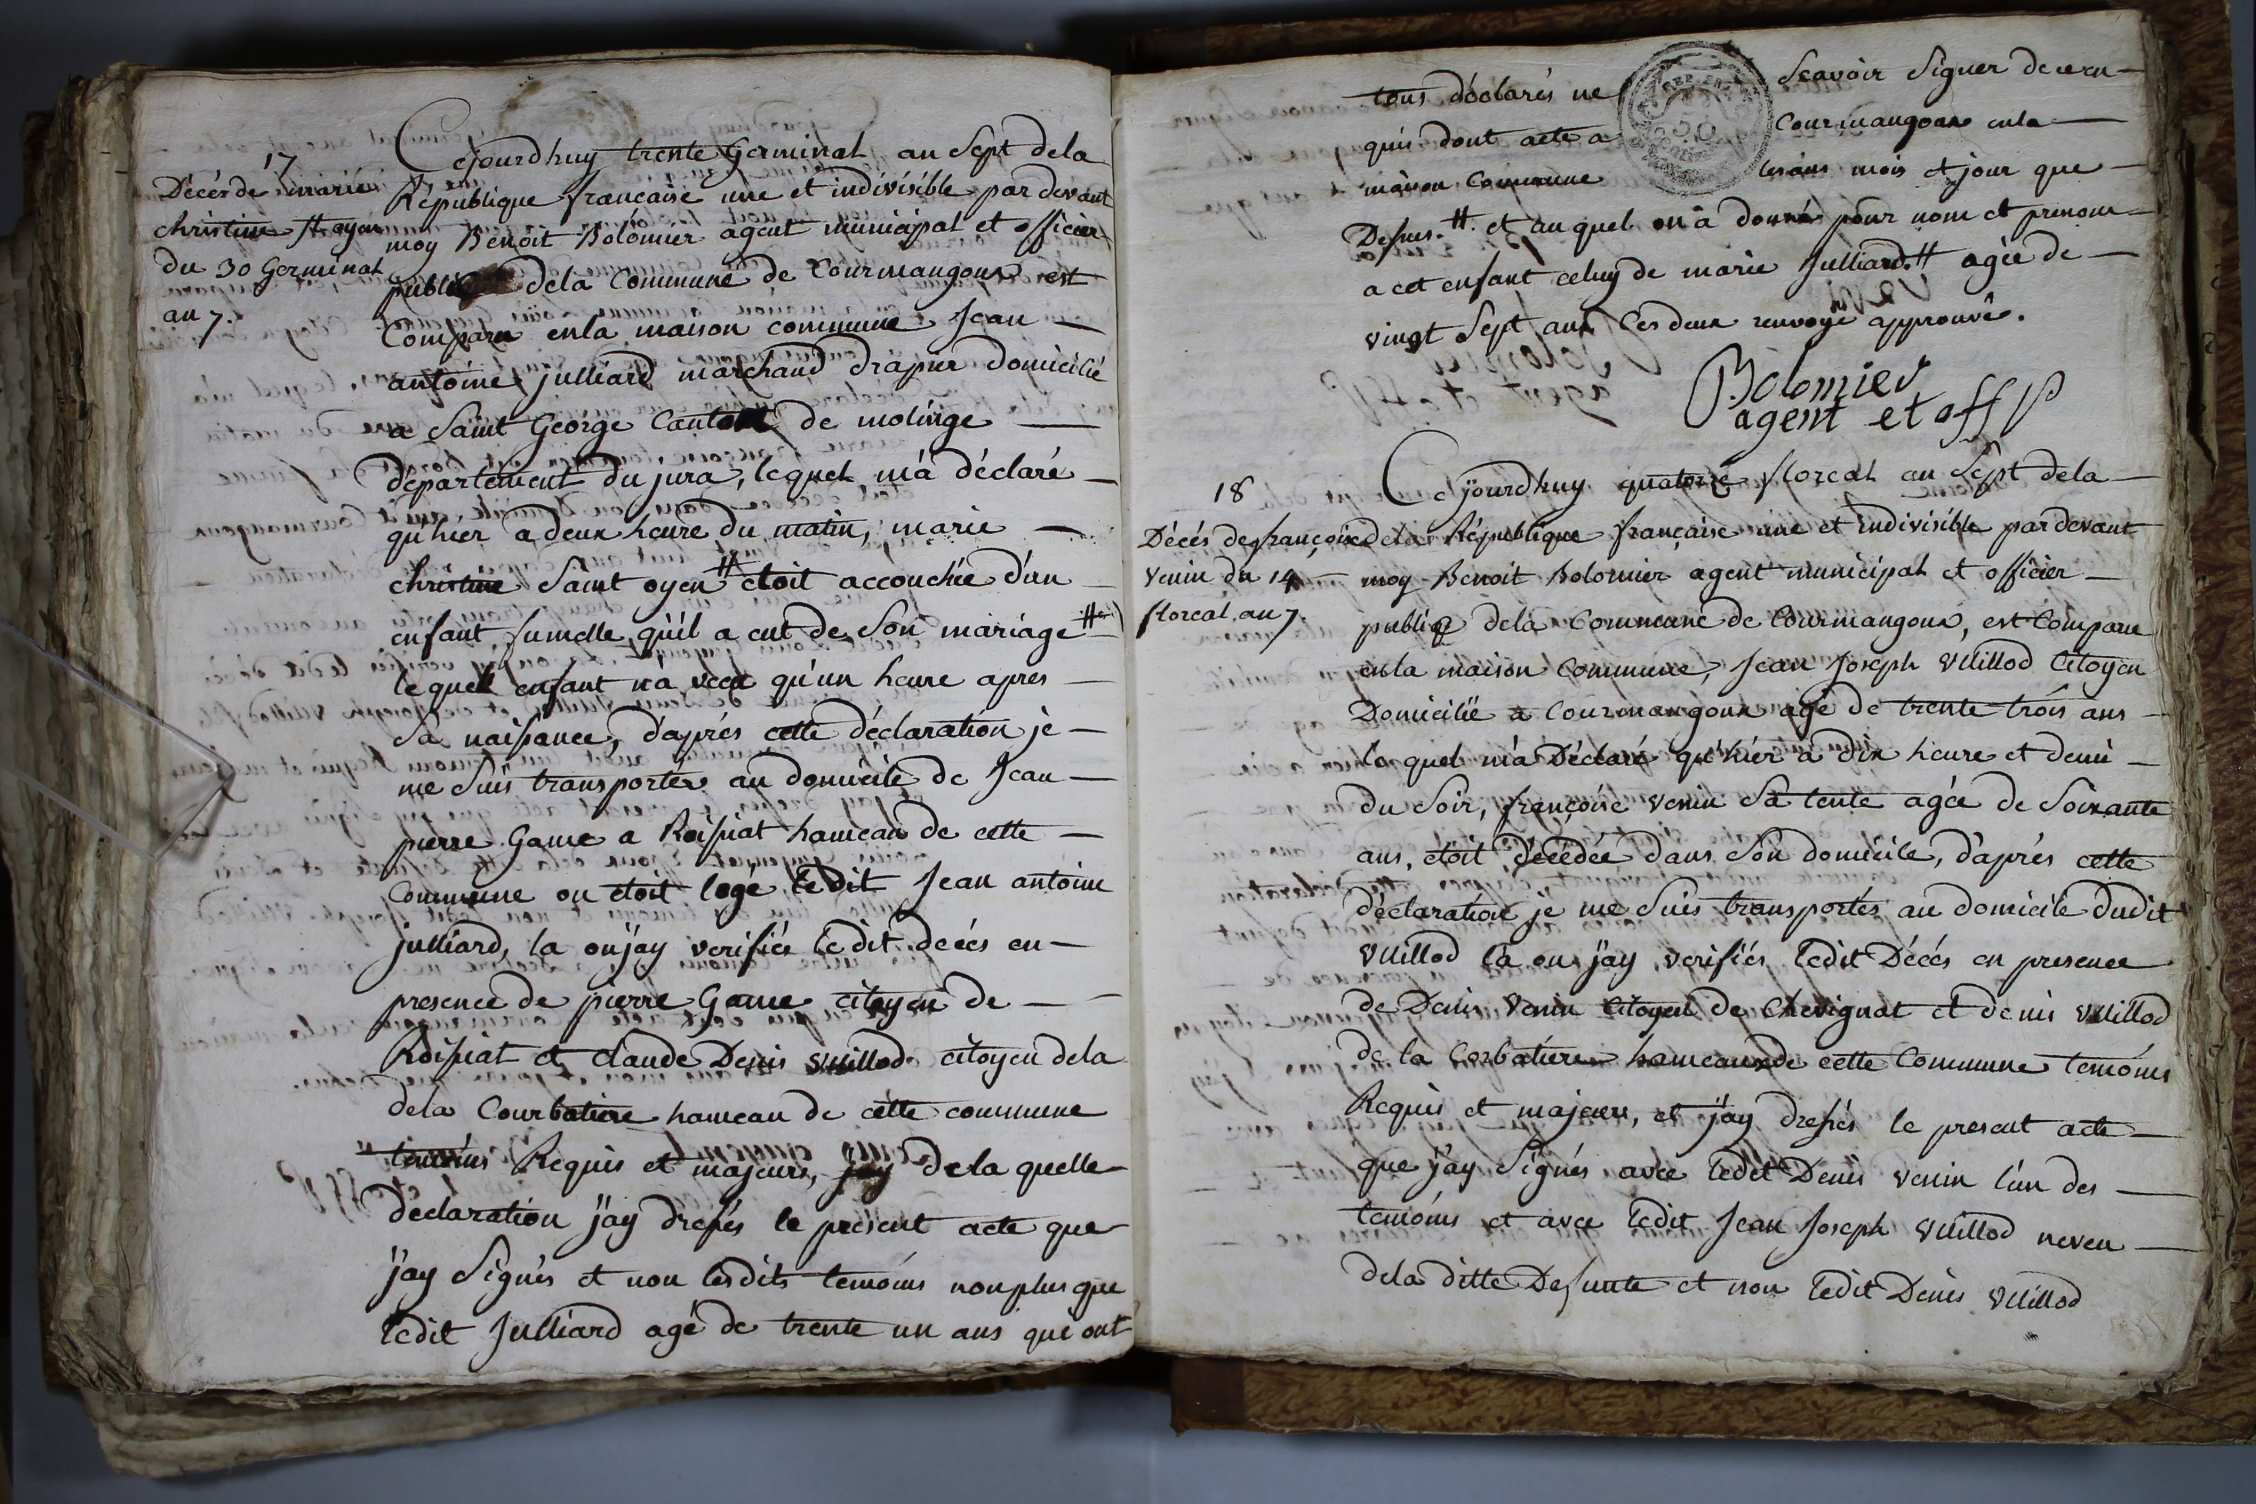 17
Décés de marie
christine St oyen
du 30 Germinal
an 7.
Cejourdhuy trente Germinal an Sept dela
République française une et indivisible par devant
moy Benoit Bolomier agent municipal et officier
public dela Commune de Courmangoux est
Comparu enla maison commune Jean —
antoine julliard marchand drapier domicilié
a Saint George Canton de molinge —
département du jura, lequel m'a déclaré —
qu'hier a deux heure du matin, marie —
christine Saint oyen # étoit accouchée d'un —
enfant fumelle qu'il a eut de Son mariage #
lequel enfant n'a vecu qu'un heure apres —
Sa naissance, d'aprés cette déclaration je —
me Suis transportés au domicile de Jean —
pierre Game a Roissiat hameau de cette —
Commune ou étoit logé ledit Jean antoine
julliard, la ou jay verifiés ledit décés en —
presence de pierre Game citoyen de —
Roissiat et claude Denis vuillod citoyen dela
dela Courbatiere hameau de cette commune
temoins Requis et majeurs, jay dela quelle
déclaration j'ay dressés le présent acte que
j'ay Signés et non lesdits temoins non plus que
ledit Julliard agé de trente un ans qui ont
tous déclarés ne Scavoir Signer de ce en —
quis dont acte a Courmangoux enla —
maison Commune les ans mois et jour que —
Dessus. # et au quel on a donné pour nom et prenom —
a cet enfant celuy de marie Julliard. # agée de —
vingt Sept ans Ces deux renvoye approuvé.
Bolomier
agent et off P
18
Décés de françoise
venin du 14
floreal an 7.
Cejourdhuy quatorze floreal an Sept dela —
dela République française une et indivisible par devant
moy Benoit Bolomier agent municipal et officier —
public dela Commune de Courmangoux, est Comparu
enla maison Commune, Jean Joseph vuillod Citoyen
Domicilié a Courmangoux agé de trente trois ans —
lequel m'a Déclaré qu'hier a dix heure et demi —
du Soir, françoise venin Sa tente agée de Soixante
ans, étoit décédée dans Son domicile, d'aprés cette
déclaration je me Suis transportés au domicile dudit
vuillod la ou j'ay verifiés ledit Décés en presence
de Denis venin Citoyen de Chevignat et denis vuillod
de la Corbatiere hameaux de cette Commune temoins
Requis et majeurs, et j'ay dressés le present acte —
que j'ay Signés avec ledit Denis venin l'un des —
temoins et avec ledit Jean Joseph vuillod neveu —
dela ditte Defunte et non ledit Denis vuillod